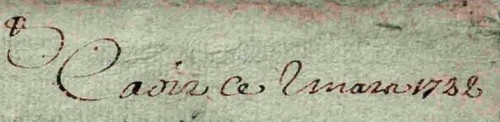 Cadix ce 2 mars 1732